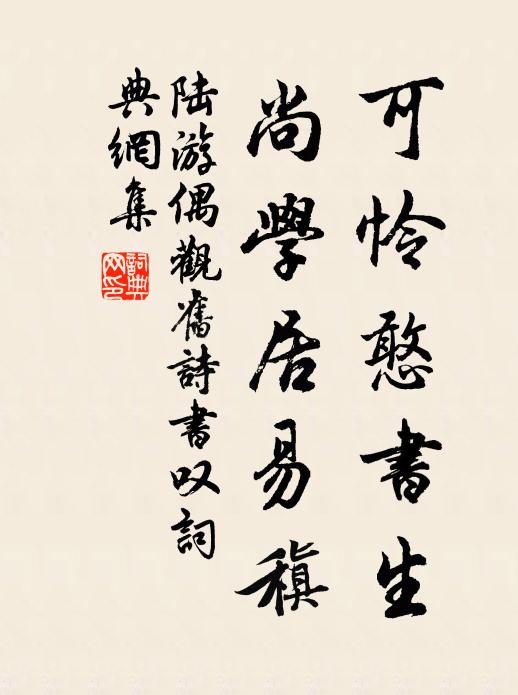 可怜憨書生
尚學居易稹
陸游偶觀舊詩書叹詞
典網集
詞典
网印